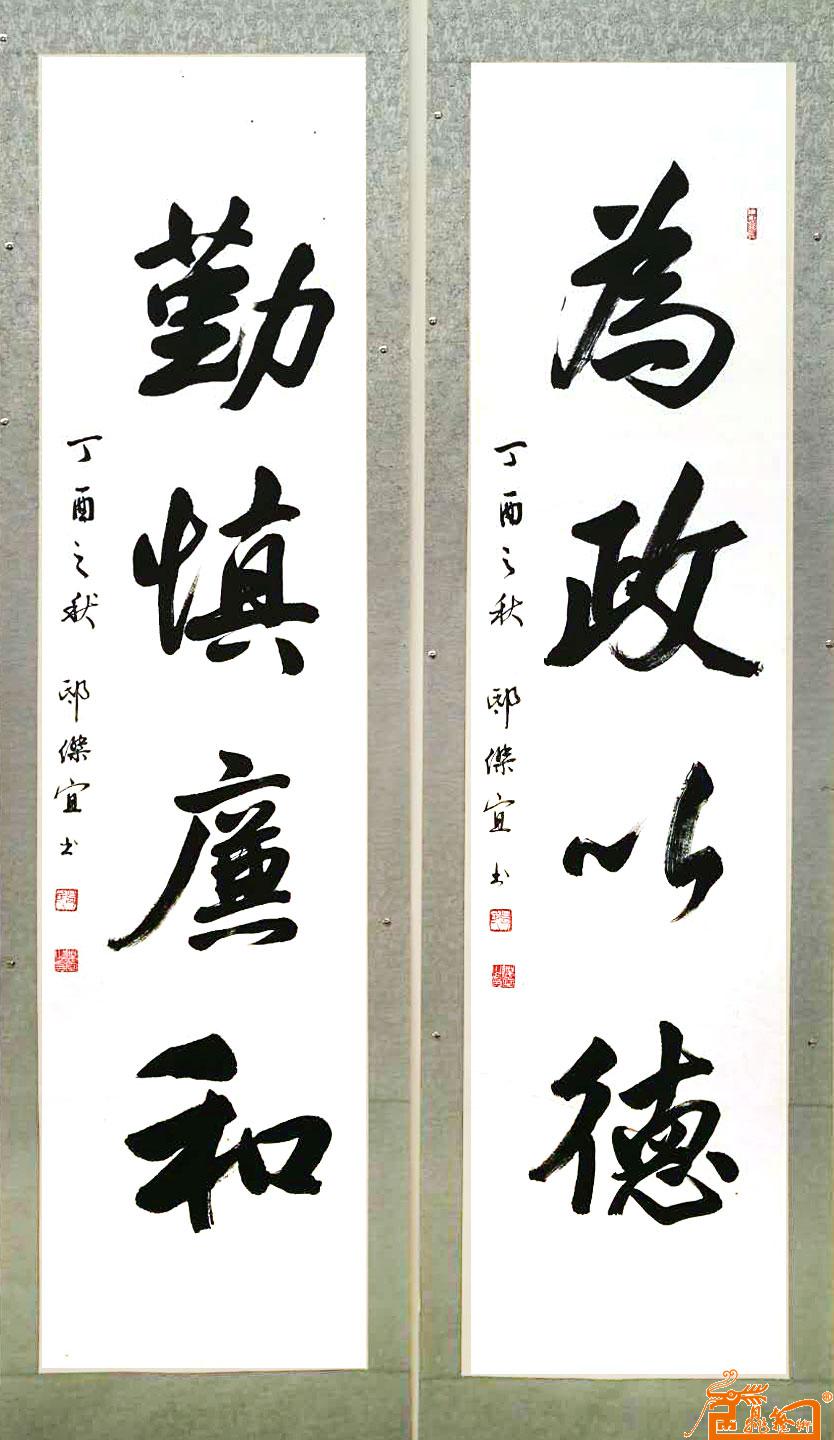 為政以德
丁酉之秋 邸傑宜书
勤慎廉和
丁酉之秋 邸傑宜书